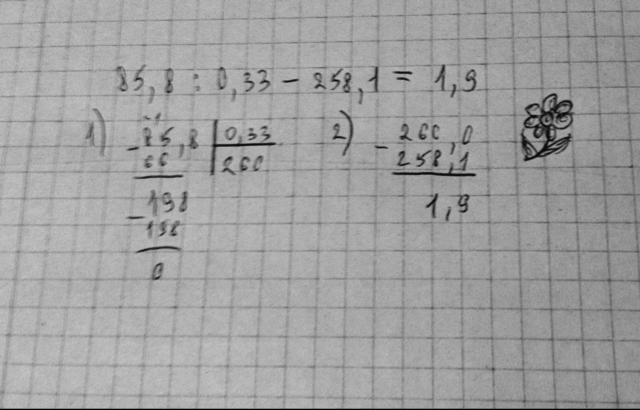 85,8 : 0,33 - 258,1 = 1,9
1) - 85,8 | 0,33
66 | 260
- 198
198
0
2) - 260,0
258,1
1,9